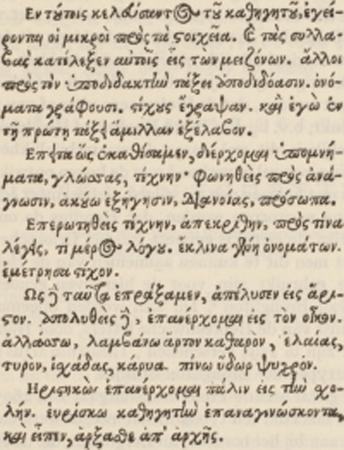 Ἐν τύτοις κελεύσαντος τȣ͂ καθηγητȣ͂, ἐγεί-
ρονται οἱ μικροὶ πρὸς τὰ στοιχεῖα. ϗ τὰς συλλα-
βὰς κατέλεξεν αὐτοῖς εἷς τῶν μειζόνων. ἄλλοι
πρὸς τὸν ὑποδιδακτὴν τάξει ἀποδιδόασιν. ὀνό-
ματα γράφουσι. στίχους ἔγραψαν. καὶ ἐγὼ ἐν
τῇ πρώτῃ τάξει ἅμιλλαν ἐξέλαβον.
Ἔπειτα ὡς ἐκαθίσαμεν, διέρχομαι ὑπομνή-
ματα, γλώσσας, τέχνην· φωνηθεὶς πρὸς ἀνά-
γνωσιν, ἀκούω ἐξήγησιν, διανοίας, πρόσωπα.
Ἐπερωτηθεὶς τέχνην, ἀπεκρίθην, πρὸς τίνα
λέγεις, τί μέρος λόγου. ἔκλινα γένη ὀνομάτων.
ἐμέτρησα στίχον.
Ὡς δὲ ταῦτα ἐπράξαμεν, ἀπέλυσεν εἰς ἄρι-
στον. ἀπολυθεὶς δὲ, ἐπανέρχομαι εἰς τὸν οἶκον.
ἀλλάσσω, λαμβάνω ἄρτον καθαρὸν, ἐλαίας,
τυρὸν, ἰσχάδας, κάρυα. πίνω ὕδωρ ψυχρόν.
Ἠριστηκὼς ἐπανέρχομαι πάλιν εἰς τὴν σχο-
λήν. εὑρίσκω καθηγητὴν ἐπαναγινώσκοντα,
καὶ εἶπεν, ἄρξασθε ἀπ' ἀρχῆς.